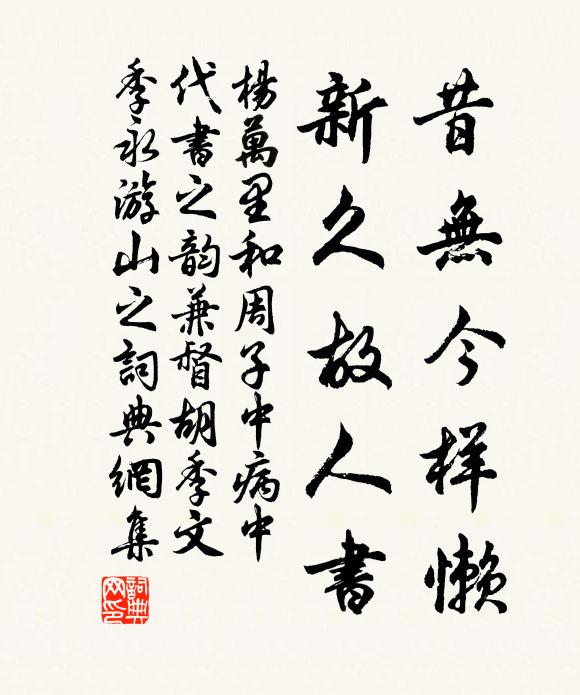 昔無今样懒
新久故人書
楊萬里和周子中病中
代書之韵兼督胡季文
季永游山之詞典網集
詞典网印